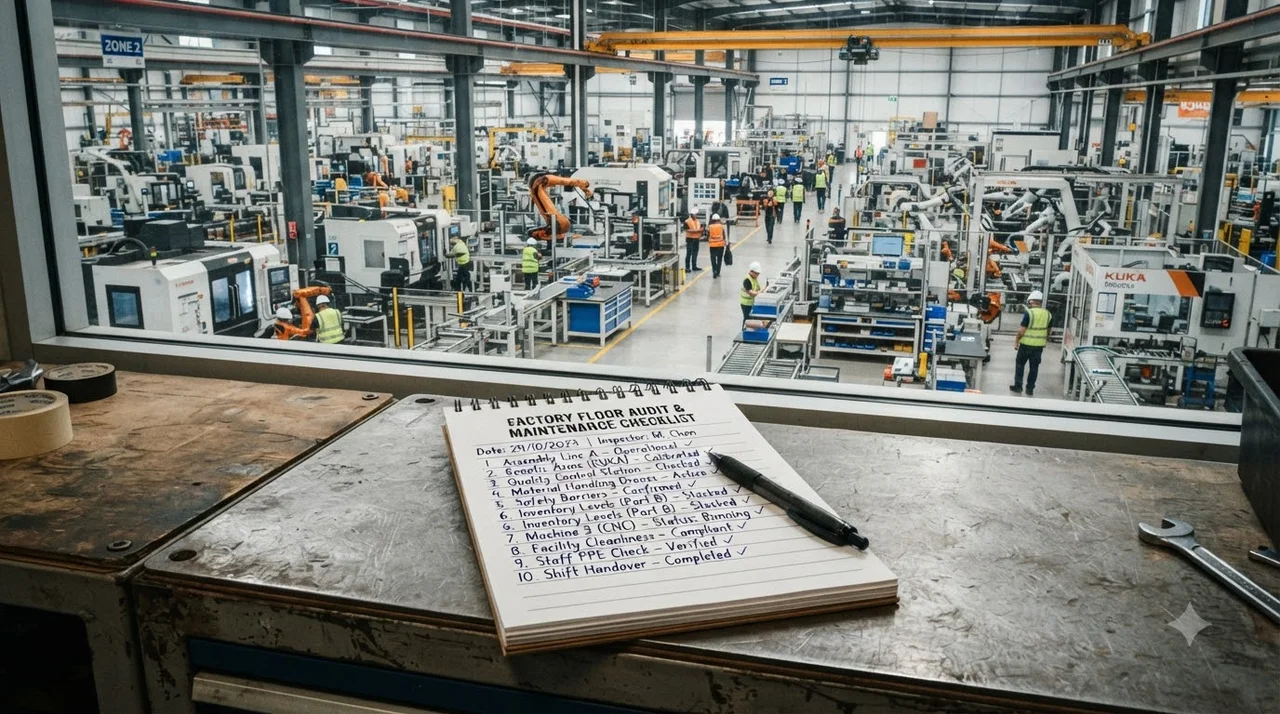 ZONE 2
KUKA
FACTORY FLOOR AUDIT &
MAINTENANCE CHECKLIST
Date: 29/10/2023 | Inspector: W. Chen
1. Assembly Line A – Operational ✓
2. Robotic Arms (KUKA) – Calibrated
3. Quality Control Station – Checked
4. Material Handling Drones – Active ✓
5. Safety Barriers – Confirmed ✓
6. Inventory Levels (Part B) – Stocked ✓
6. Inventory Levels (Part B) – Stocked ✓
7. Machine 3 (CNC) – Status: Running ✓
8. Facility Cleanliness – Compliant ✓
9. Staff PPE Check – Verified ✓
10. Shift Handover – Completed ✓